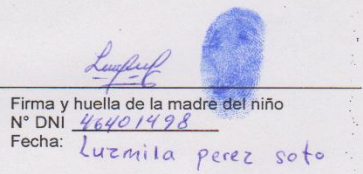 Firma y huella de la madre del niño
N° DNI 46401498
Fecha: Luzmila perez soto